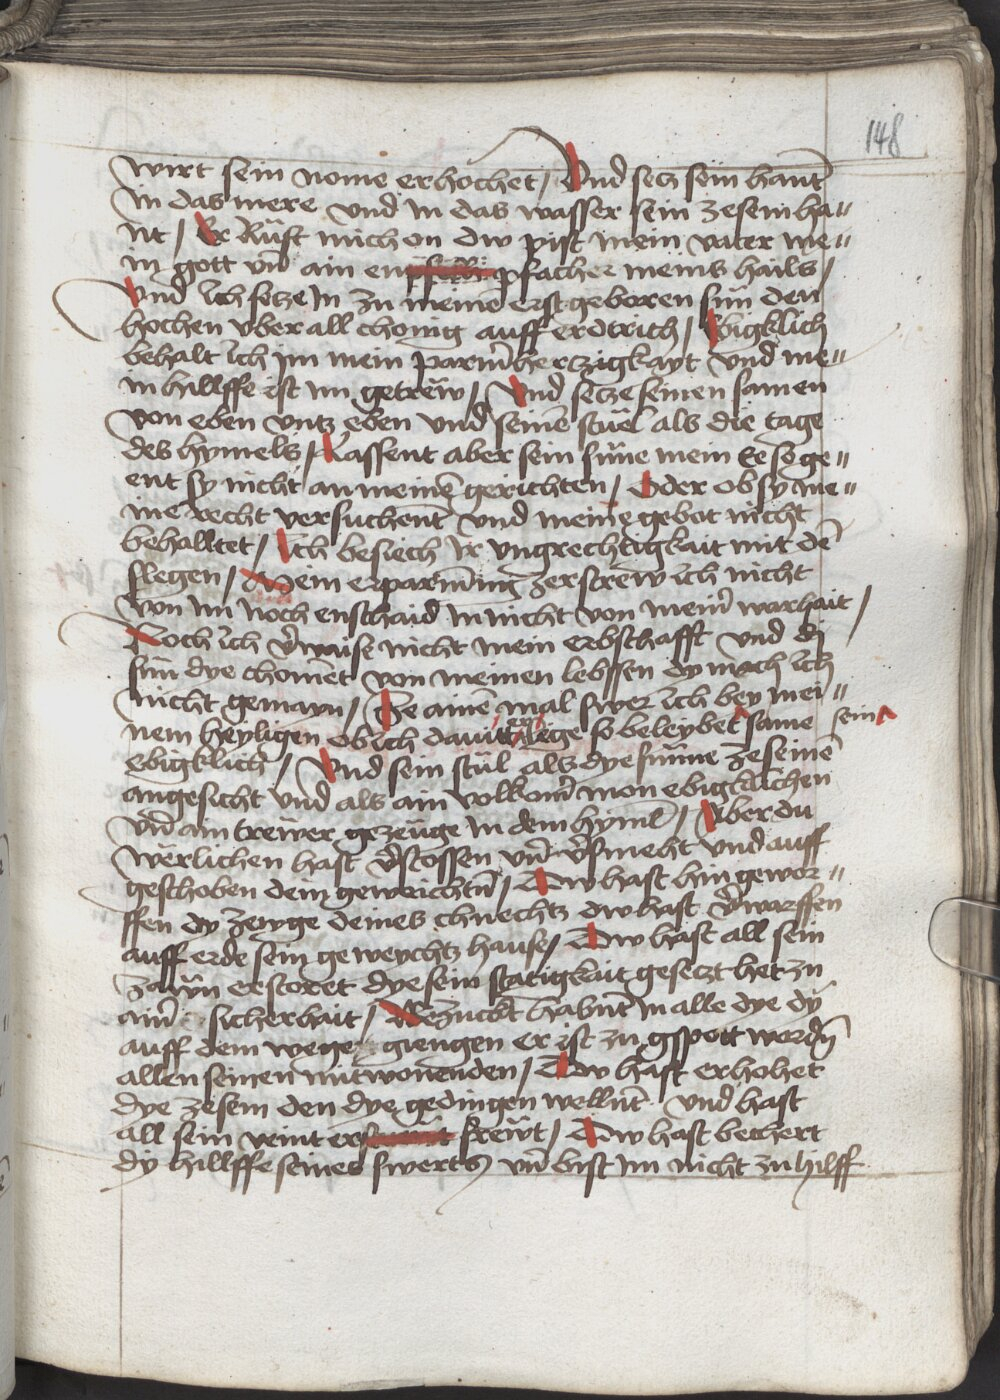 148
wirt sein nome erhochet / Vnd secz sein hant
in das mere vnd in das wasser sein zesem ha〃
nt / Er Rüft mich on dw pist mein vater me〃
in gott vn̄ ain enpfacher meins hails /
Vnd ich secze in zu meinē erst geboren sun den
hochen vber all chonig auff erdtrich / Ebigklich
behalt ich im mein parm̄herczigkayt vnd me〃
in hillffe ist im getrew / Vnd secze seinen samen
von eben vntz eben vnd seinē stuel als die tage
des hymels / Lassent aber sein süne mein Ee so ge〃
ent sy nicht an meinē gerichten / Oder ob sy me〃
ine recht versuchent vnd meine gebot nicht
behalltet / Ich besiech Ir vngrechtigkait mit dē
slegen / Mein erparmung zerstrew ich nicht
von im noch enschaid in nicht von mein̄ warhait /
Noch ich v̄waise nicht mein erbschafft vnd dy
sin dye chomēt von meinen lebssen dy mach ich
nicht gemayn / Ze ainē mal swer ich bey mei〃
nem heyligen ob ich dauit er lege so beleybet same sein
ebigklich / Vnd sein stül als dye sunne ze seinē
angesicht vnd als ain volkom̄ mon ebigklichen
vn̄ ain trewer gezeuge in dem hyml̄ / Aber du
werlichen hast v̄stossen vn̄ v̄smecht vnd auff
geschoben dem geweichtn̄ / Dw hast hin gewor〃
ffen dy zewge deines chnechtz dw hast v̄worffen
auff erde sein geweychtz hause / Dw hast all sein
zawn erstoret dye sein statigkait geseczt het zu
ain̄ sicherhait / Bezuckt habnt in alle dye dy
auff dem wege giengen er ist zu gspott wordn̄
allen seinen mitwonenden / Dw hast erhohet
dye zesem den dye gedingen wellnt vnd hast
all sein veint er frewt / Dw hast bechert
dy hillffe seines swerts vn̄ bist im nicht zu hilff